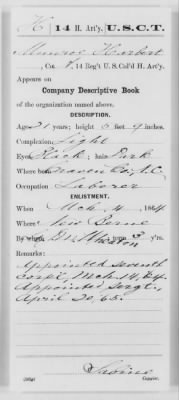 H | 14 H. Art'y. | U.S.C.T.
Munroe Herbert
, Co. H, 14 Reg't U. S. Col'd H. Art'y.
Appears on
Company Descriptive Book
of the organization named above.
DESCRIPTION.
Age 21 years; height 5 feet 9 inches.
Complexion Light
Eyes Black; hair Dark
Where born Craven Co., N.C.
Occupation Laborer
ENLISTMENT.
When Mch. 4, 1864
Where New Berne
By whom term 3 y'rs.
Remarks:
Appointed seventh
corp'l Mch. 14, 64.
Appointed Sergt.
April 20, 65.
Copyist.